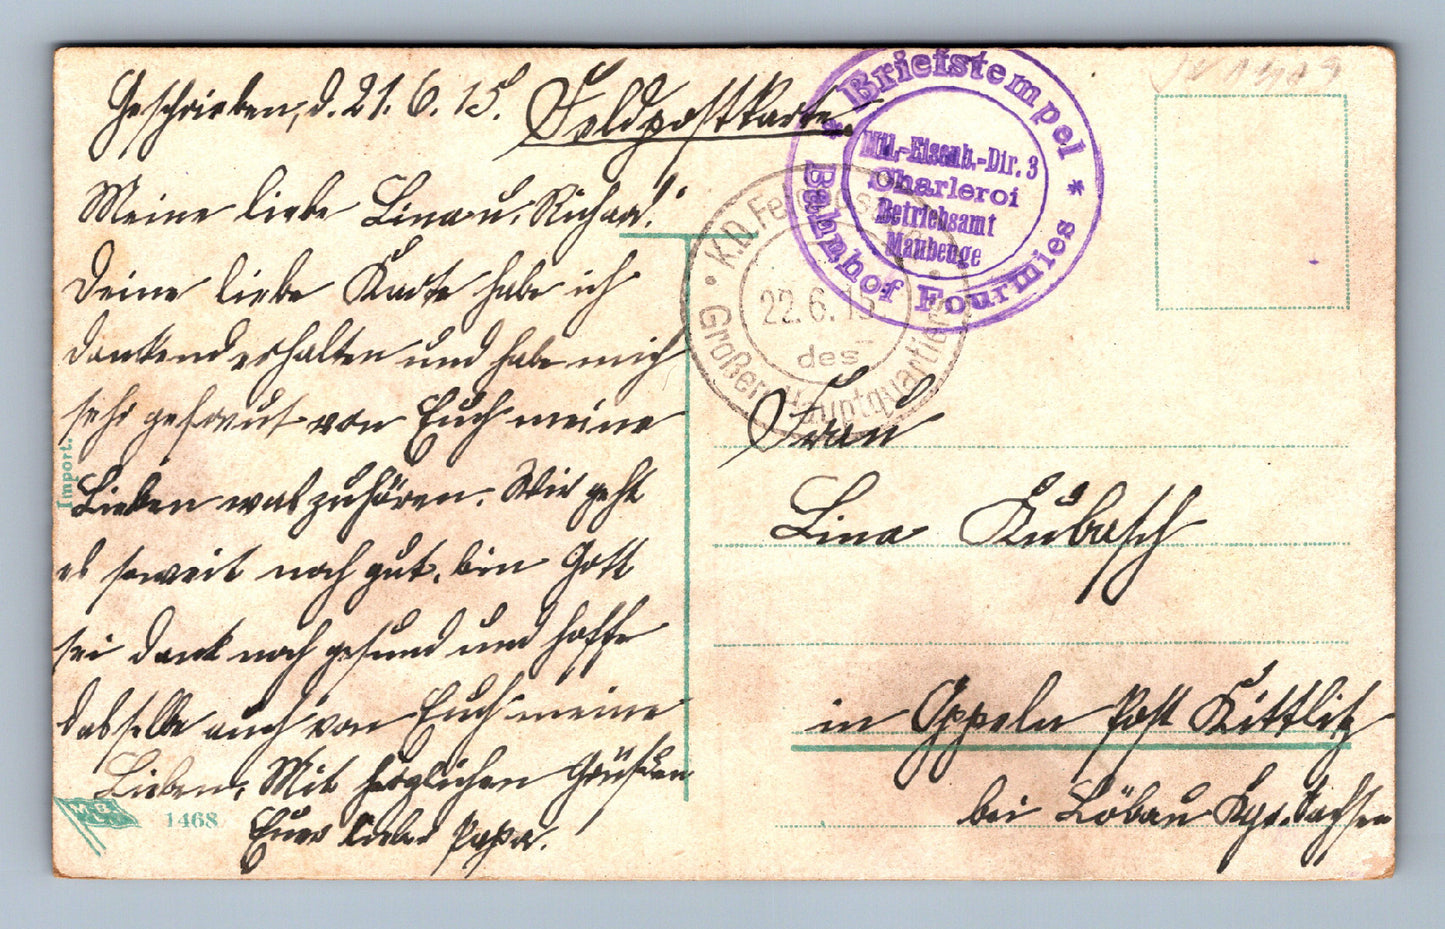 Geschrieben, d. 21. 6. 15. Feldpostkarte
Meine liebe Lina u. Richard!
Deine liebe Karte habe ich
dankend erhalten und habe mich
sehr gefreut von Euch meine
Lieben was zu hören. Wir geht
es soweit noch gut, bin Gott
sei dank noch gesund und hoffe
dasselbe auch von Euch meine
Lieben, Mit herzlichen Grüßen
Euer lieber Papa.
Import.
M.B.
1468
Briefstempel
Mil.-Eisenb.-Dir. 3
Charleroi
Betriebsamt
Maubenge
Bahnhof Fourmies
K.D. Feldpost
22.6.15
des
Großen Hauptquartiers
Frau
Lina Kubasch
in Oppeln Post Kittlitz
bei Löbau Kgr. Sachsen